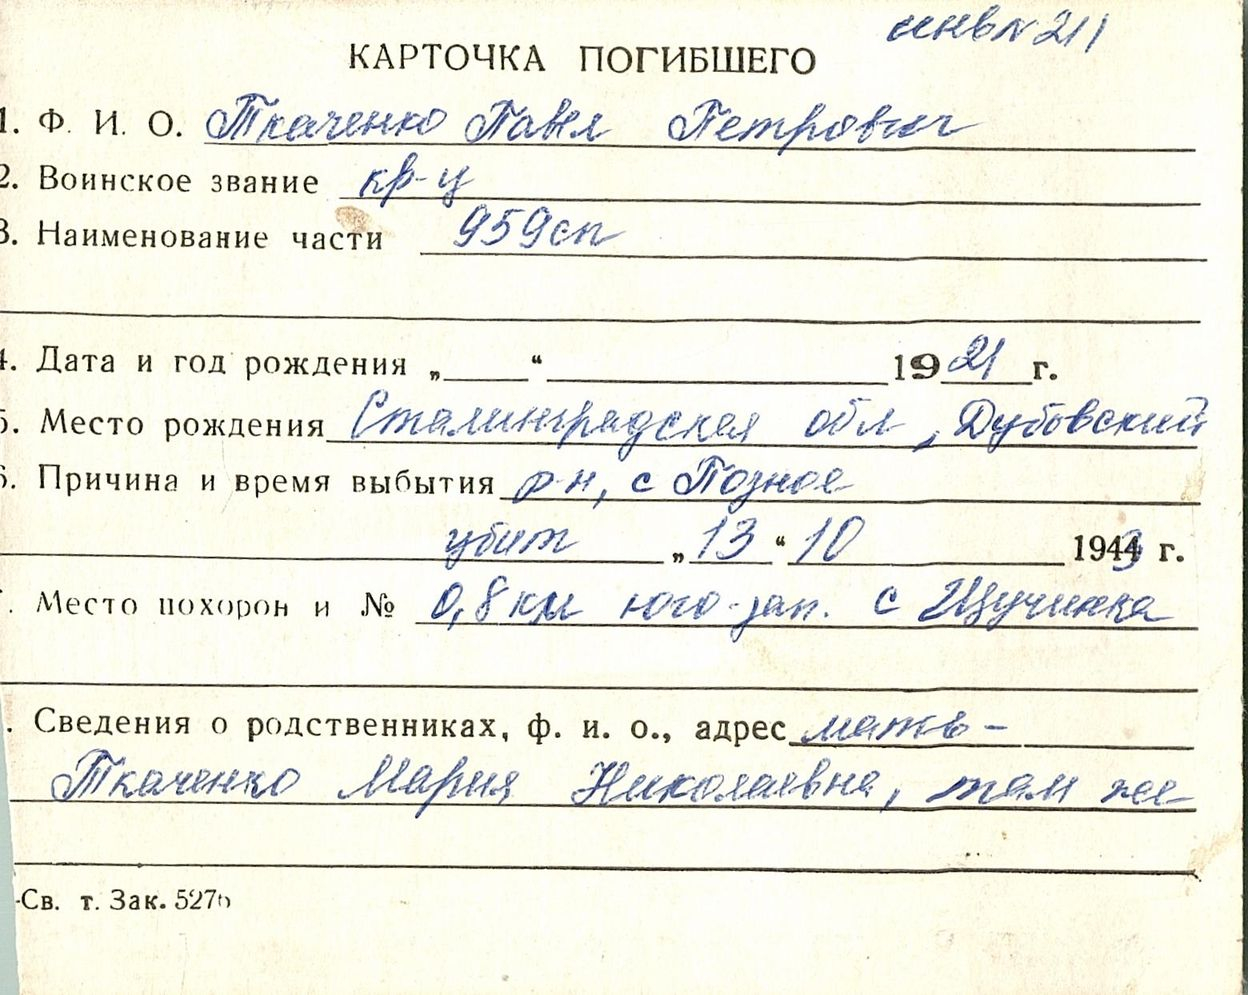 инв № 211
КАРТОЧКА ПОГИБШЕГО
1. Ф. И. О. Ткаченко Павел Петрович
2. Воинское звание кр-ц
3. Наименование части 959сп
4. Дата и год рождения „ “ 1921 г.
5. Место рождения Сталинградская обл, Дубовский
6. Причина и время выбытия р-н, с Позное
убит „13“ 10 1943 г.
. Место похорон и № 0,8 км юго-зап. с Щучинка
. Сведения о родственниках, ф. и. о., адрес мать –
Ткаченко Мария Николаевна, там же
-Св. т. Зак. 5276